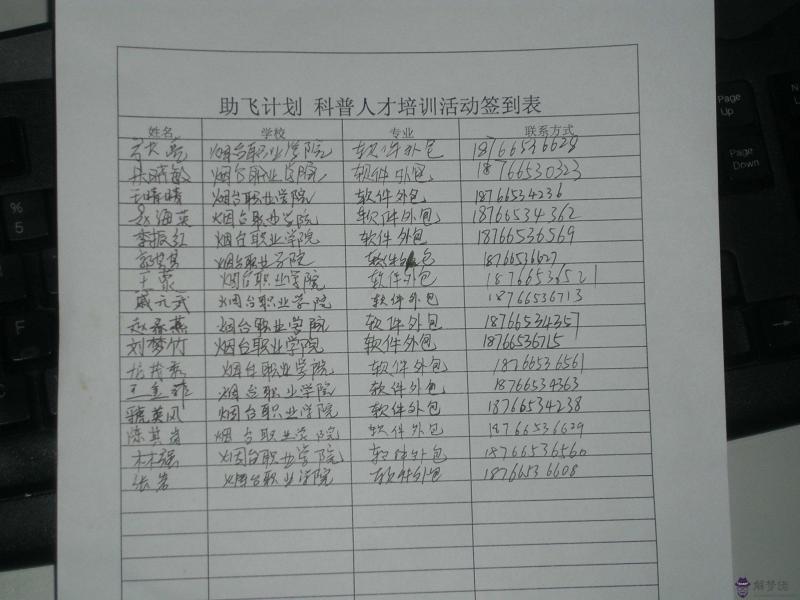 助飞计划 科普人才培训活动签到表
姓名 学校 专业 联系方式
烟台职业学院 软件外包 18766536628
晓敏 烟台职业学院 软件外包 18766530323
王晴晴 烟台职业学院 软件外包 18766534236
赵海英 烟台职业学院 软件外包 18766534362
李振红 烟台职业学院 软件外包 18766536569
烟台职业学院 软件外包 18766536627
王蒙 烟台职业学院 软件外包 18766536521
戚元武 烟台职业学院 软件外包 18766536713
赵桑燕 烟台职业学院 软件外包 18766534357
刘梦竹 烟台职业学院 软件外包 18766536715
烟台职业学院 软件外包 18766536561
王金菲 烟台职业学院 软件外包 18766534363
英凤 烟台职业学院 软件外包 18766534238
陈其岗 烟台职业学院 软件外包 18766536629
林强 烟台职业学院 软件外包 18766536560
张岩 烟台职业学院 软件外包 18766536608
Page Up
Page Down
%
5
F
解梦佬